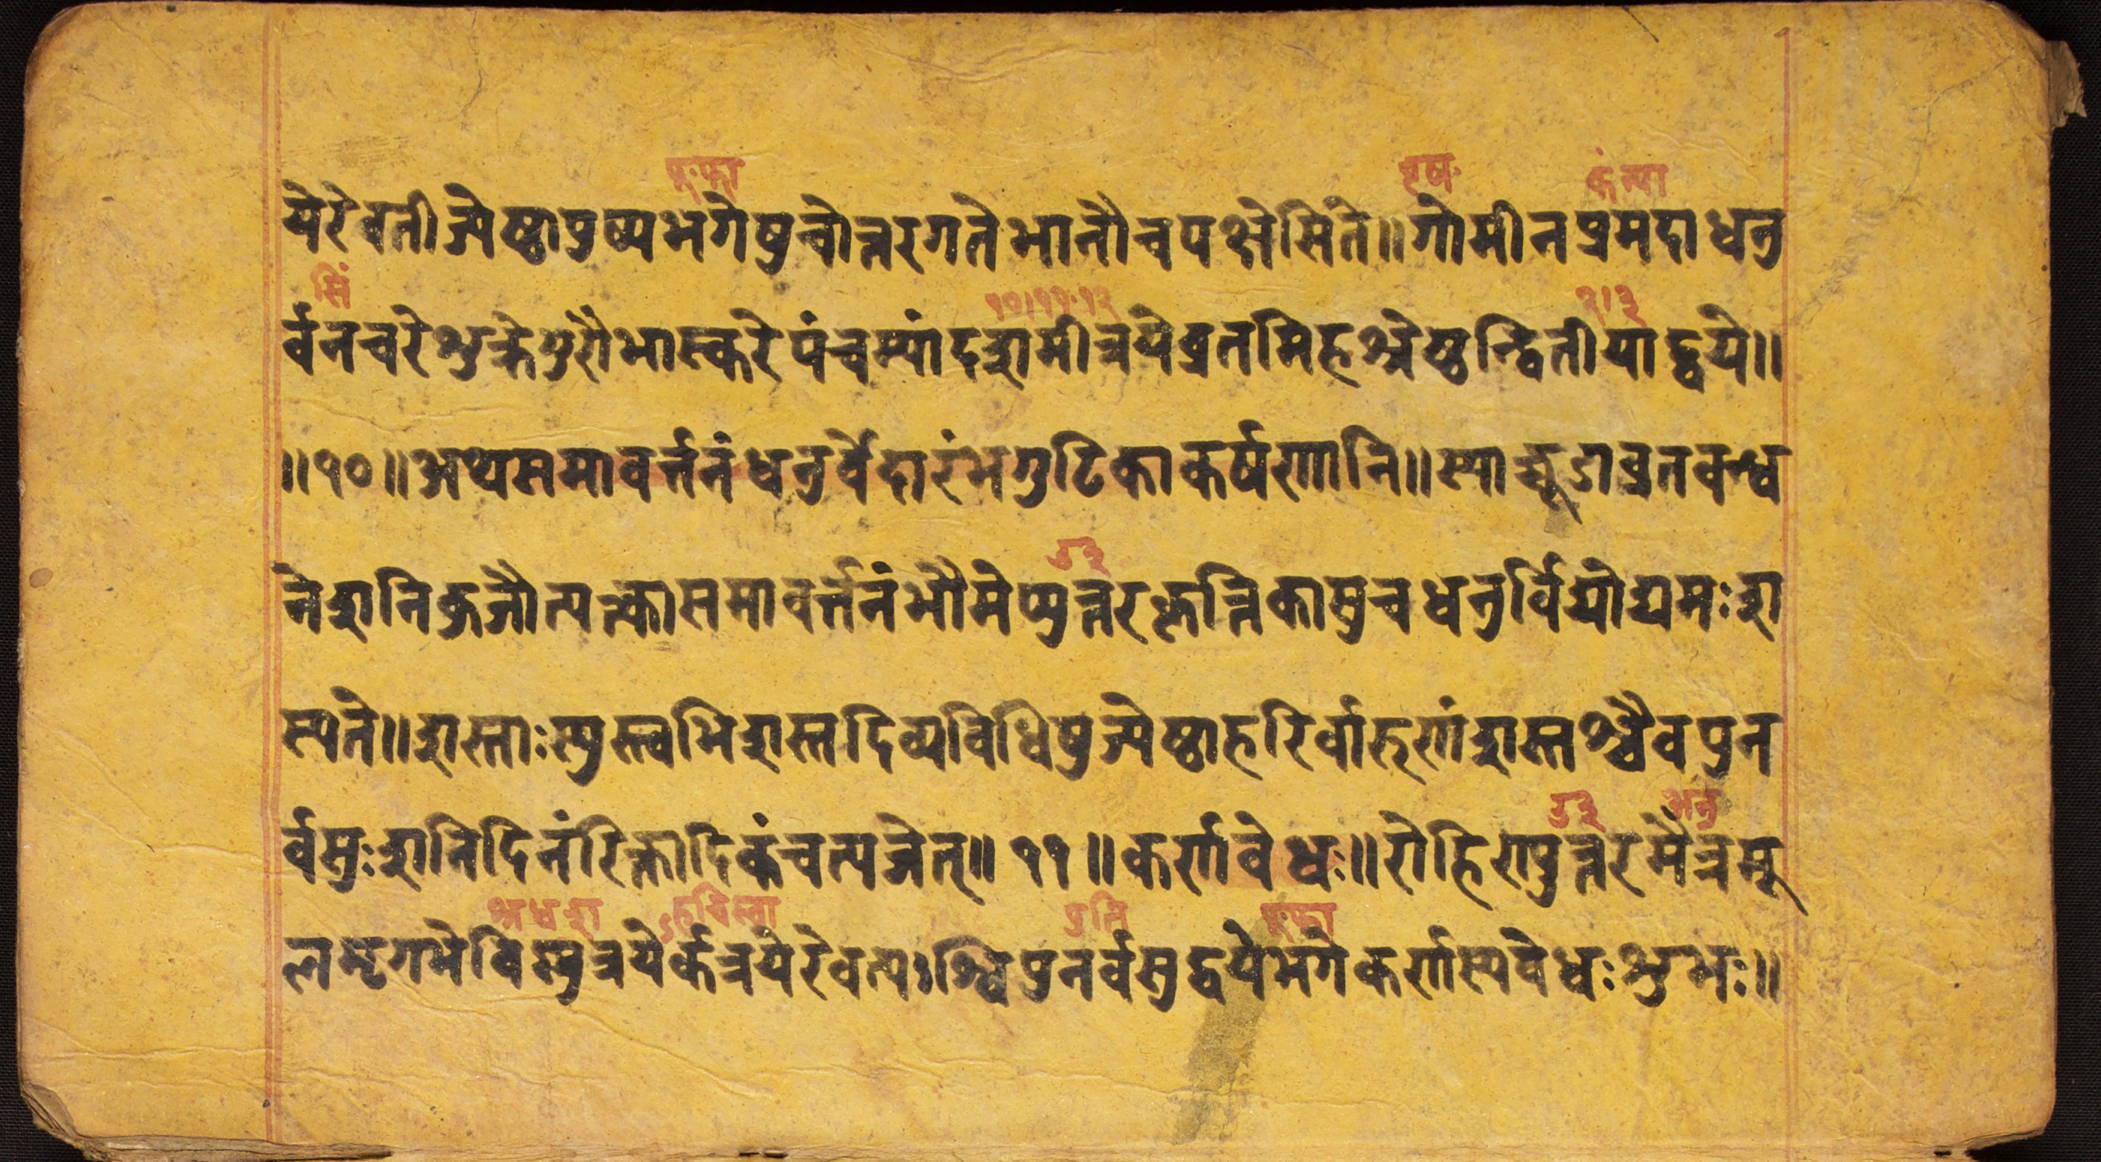 पू.फा वृष. कंन्या
येरेवतीज्येष्ठापुष्यभगेषुचोत्तरगतेभानौचपक्षेसिते॥गोमीनप्रमदाधनु
सिं १०।११.१२ २।३
र्वनचरेशुक्रेगुरौभास्करेपंचम्यांदशमीत्रयेव्रतमिहश्रेष्ठन्द्वितीयाद्वये॥
॥१०॥अथसमावर्त्तनंधनुर्वेदारंभगुटिकाकर्षणानि॥स्याच्चूडाव्रतबन्ध
उ३
नेशनिकुजौत्यत्कासमावर्त्तनंभौमेप्युत्तरकृत्तिकासुचधनुर्विद्योद्यमःशा
स्यते॥शस्ताःस्युस्त्वभिशस्तदिव्यविधिषुज्येष्ठाहरिर्वारुणंशस्तश्चैवपुन
र्वसुःशनिदिनंरिक्तादिकंचत्यजेत्॥११॥कर्णवेधः॥रोहिण्युत्तरमैत्रमू
उ३ अनु
श्रधश ऽहचिस्वा पुति पू.फा
लमृगभेविस्युत्रयेर्कत्रयेरेवत्यश्विपुनर्वसुद्वयेभगेकर्णस्यवेधःशुभः॥